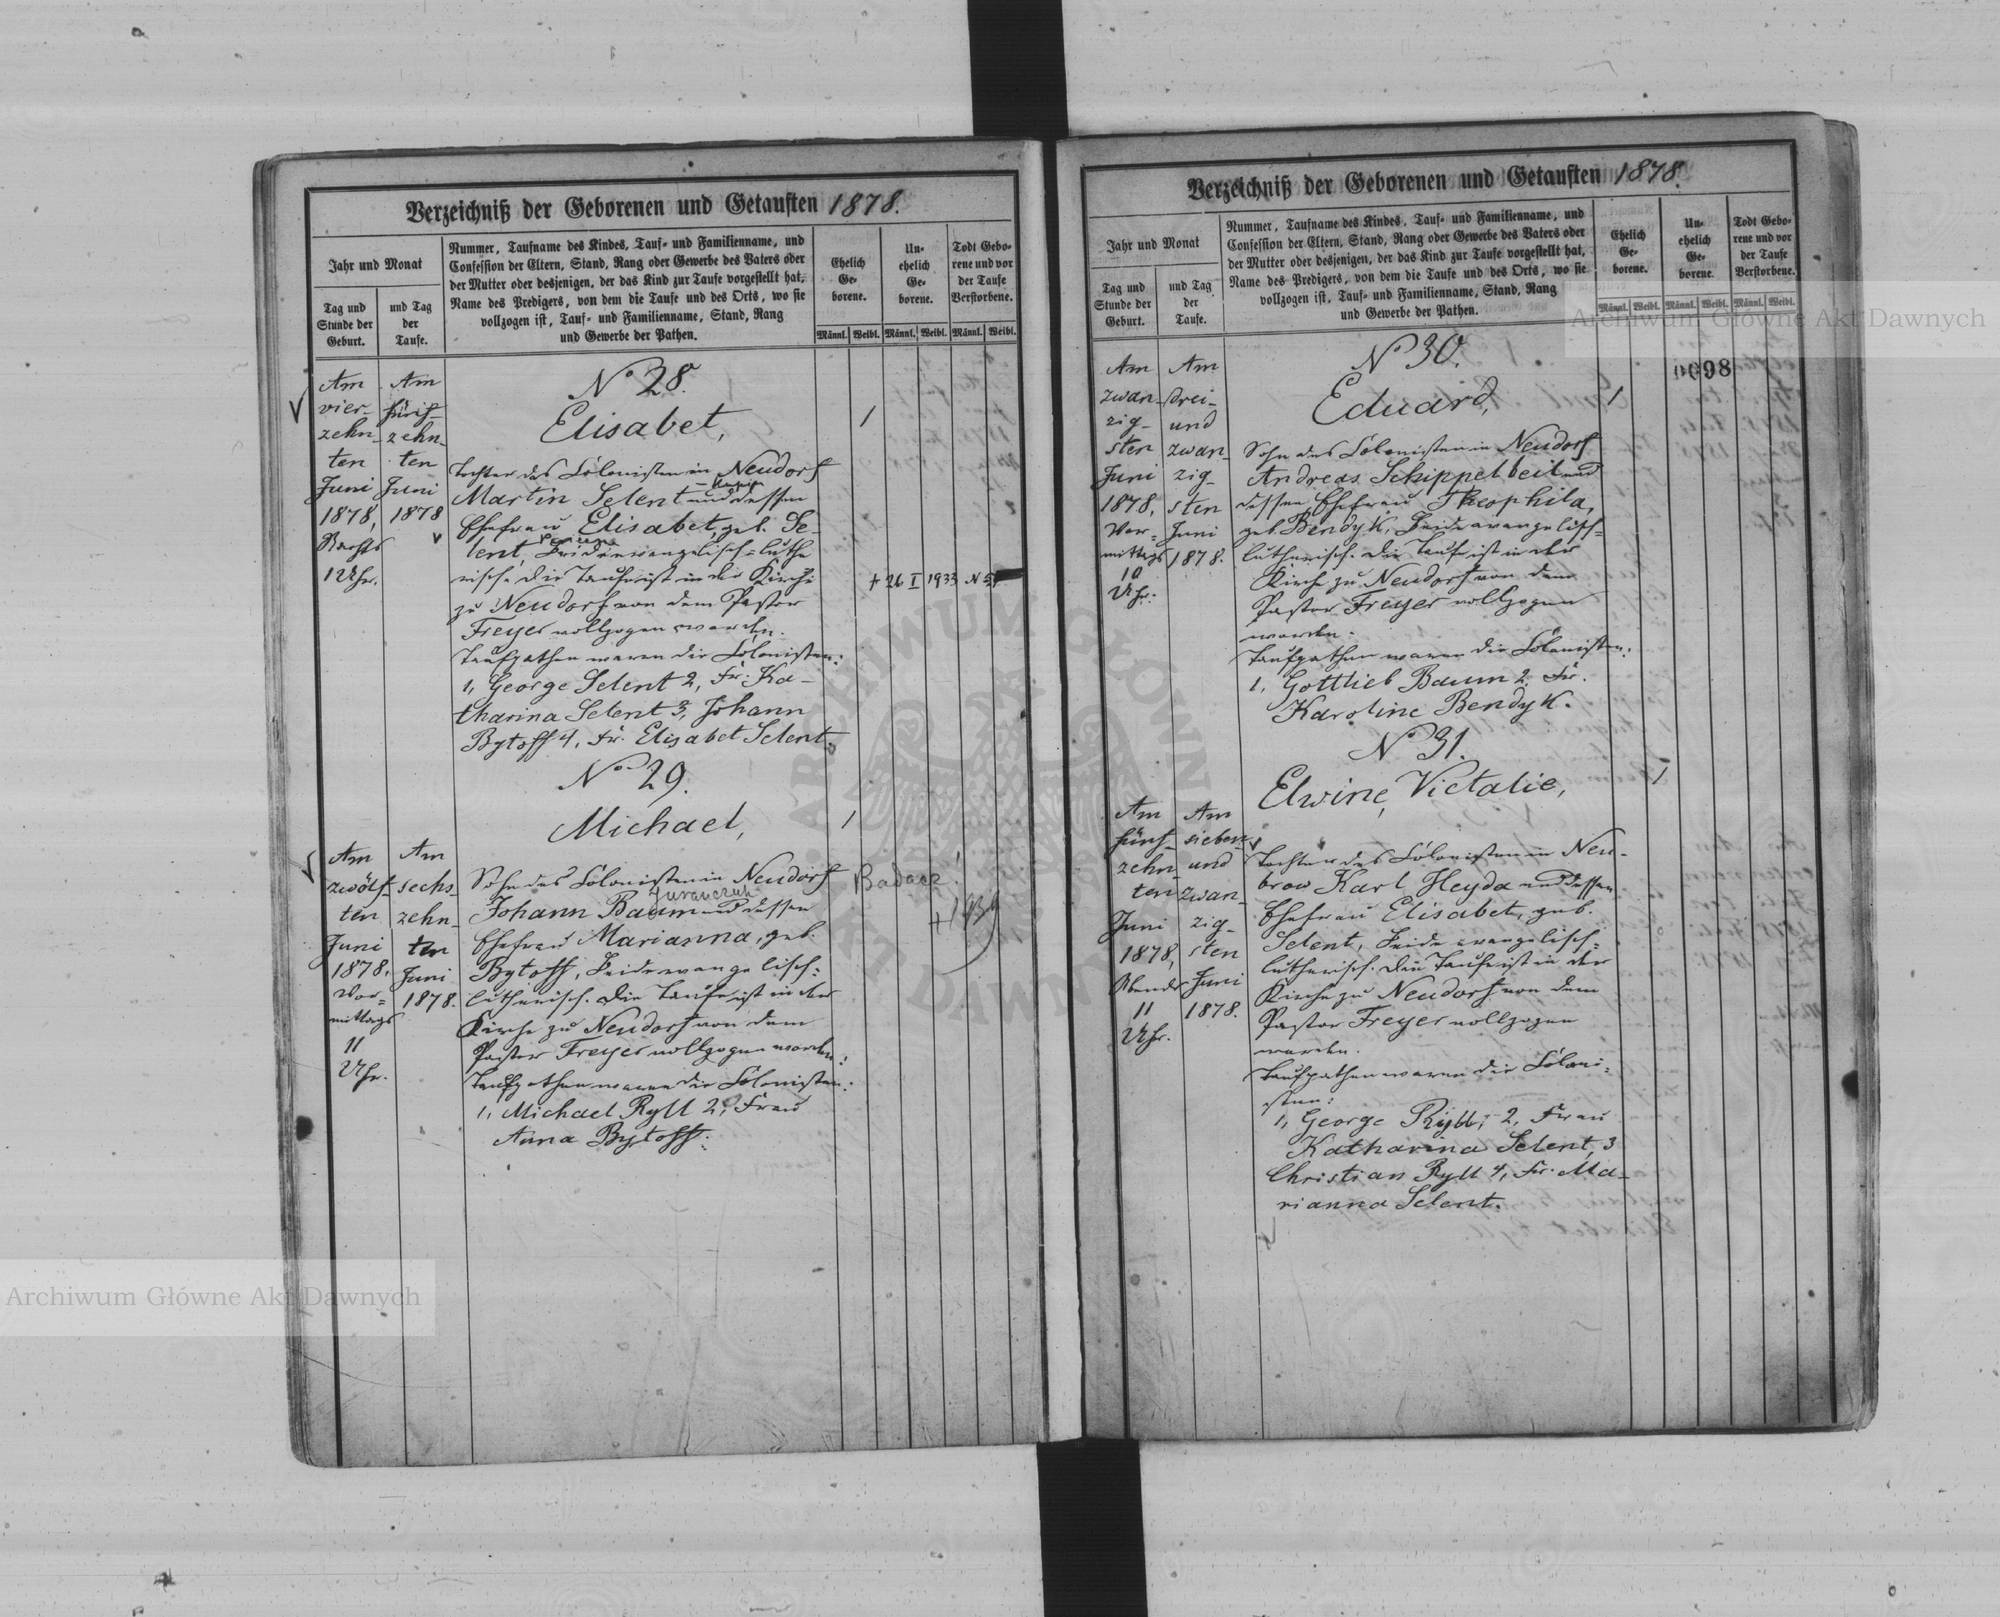 Verzeichniß der Geborenen und Getauften 1878.
Jahr und Monat
Tag und
Stunde der
Geburt.
und Tag
der
Taufe.
Nummer, Taufname des Kindes, Tauf- und Familienname, und
Confession der Eltern, Stand, Rang oder Gewerbe des Vaters oder
der Mutter oder desjenigen, der das Kind zur Taufe vorgestellt hat,
Name des Predigers, von dem die Taufe und des Orts, wo sie
vollzogen ist, Tauf- und Familienname, Stand, Rang
und Gewerbe der Pathen.
Ehelich
Ge-
borene.
Un-
ehelich
Ge-
borene.
Todt Gebo-
rene und vor
der Taufe
Verstorbene.
Männl. Weibl. Männl. Weibl. Männl. Weibl.
Am
vier-
zehn-
ten
Juni
1878,
Nachts
1 Uhr.
Am
fünf-
zehn-
ten
Juni
1878
No 28.
Elisabet,
1
Tochter des Colonisten in Neudorf
Martin Selent und dessen
Ehefrau Elisabet, geb. Se-
lent, Beide evangelisch-luthe
risch. Die Taufe ist in der Kirche
zu Neudorf von dem Pastor
Freyer vollzogen worden.
Taufpathen waren die Colonisten:
1, George Selent 2, Fr. Ka-
tharina Selent 3, Johann
Bytoff 4, Fr. Elisabet Selent.
+ 26 I 1933 N
No 29.
Michael,
1
Am
zwölf-
ten
Juni
1878,
Vor-
mittags
11
Uhr.
Am
sechs-
zehn-
ten
Juni
1878.
Sohn des Colonisten in Neudorf
Johann Baum und dessen
Ehefrau Marianna, geb.
Bytoff, Beide evangelisch-
lutherisch. Die Taufe ist in der
Kirche zu Neudorf von dem
Pastor Freyer vollzogen worden.
Taufpathen waren die Colonisten:
1, Michael Ryll 2, Frau
Anna Bytoff.
Badacz
+ 1939
Verzeichniß der Geborenen und Getauften 1878.
Jahr und Monat
Tag und
Stunde der
Geburt.
und Tag
der
Taufe.
Nummer, Taufname des Kindes, Tauf- und Familienname, und
Confession der Eltern, Stand, Rang oder Gewerbe des Vaters oder
der Mutter oder desjenigen, der das Kind zur Taufe vorgestellt hat,
Name des Predigers, von dem die Taufe und des Orts, wo sie
vollzogen ist, Tauf- und Familienname, Stand, Rang
und Gewerbe der Pathen.
Ehelich
Ge-
borene.
Un-
ehelich
Ge-
borene.
Todt Gebo-
rene und vor
der Taufe
Verstorbene.
Männl. Weibl. Männl. Weibl. Männl. Weibl.
0098
Am
zwan-
zig-
sten
Juni
1878,
Vor-
mittags
10
Uhr.
Am
drei-
und
zwan-
zig-
sten
Juni
1878.
No 30.
Eduard,
1
Sohn des Colonisten in Neudorf
Andreas Schippelbeil und
dessen Ehefrau Theophila,
geb. Bendyk, Beide evangelisch-
lutherisch. Die Taufe ist in der
Kirche zu Neudorf von dem
Pastor Freyer vollzogen
worden.
Taufpathen waren die Colonisten:
1, Gottlieb Baum 2, Fr.
Karoline Bendyk.
No 31.
Elwine, Victalie,
1
Am
fünf-
zehn-
ten
Juni
1878,
Abends
11
Uhr.
Am
sieben-
und
zwan-
zig-
sten
Juni
1878.
Tochter des Colonisten in Neu-
brow Karl Heyda und dessen
Ehefrau Elisabet, geb.
Selent, Beide evangelisch-
lutherisch. Die Taufe ist in der
Kirche zu Neudorf von dem
Pastor Freyer vollzogen
worden.
Taufpathen waren die Coloni-
sten:
1, George Ryll, 2, Frau
Katharina Selent, 3
Christian Ryll 4, Fr. Ma-
rianna Selent.
Archiwum Główne Akt Dawnych
Archiwum Główne Akt Dawnych
ARCHIWUM GŁÓWNE AKT DAWNYCH